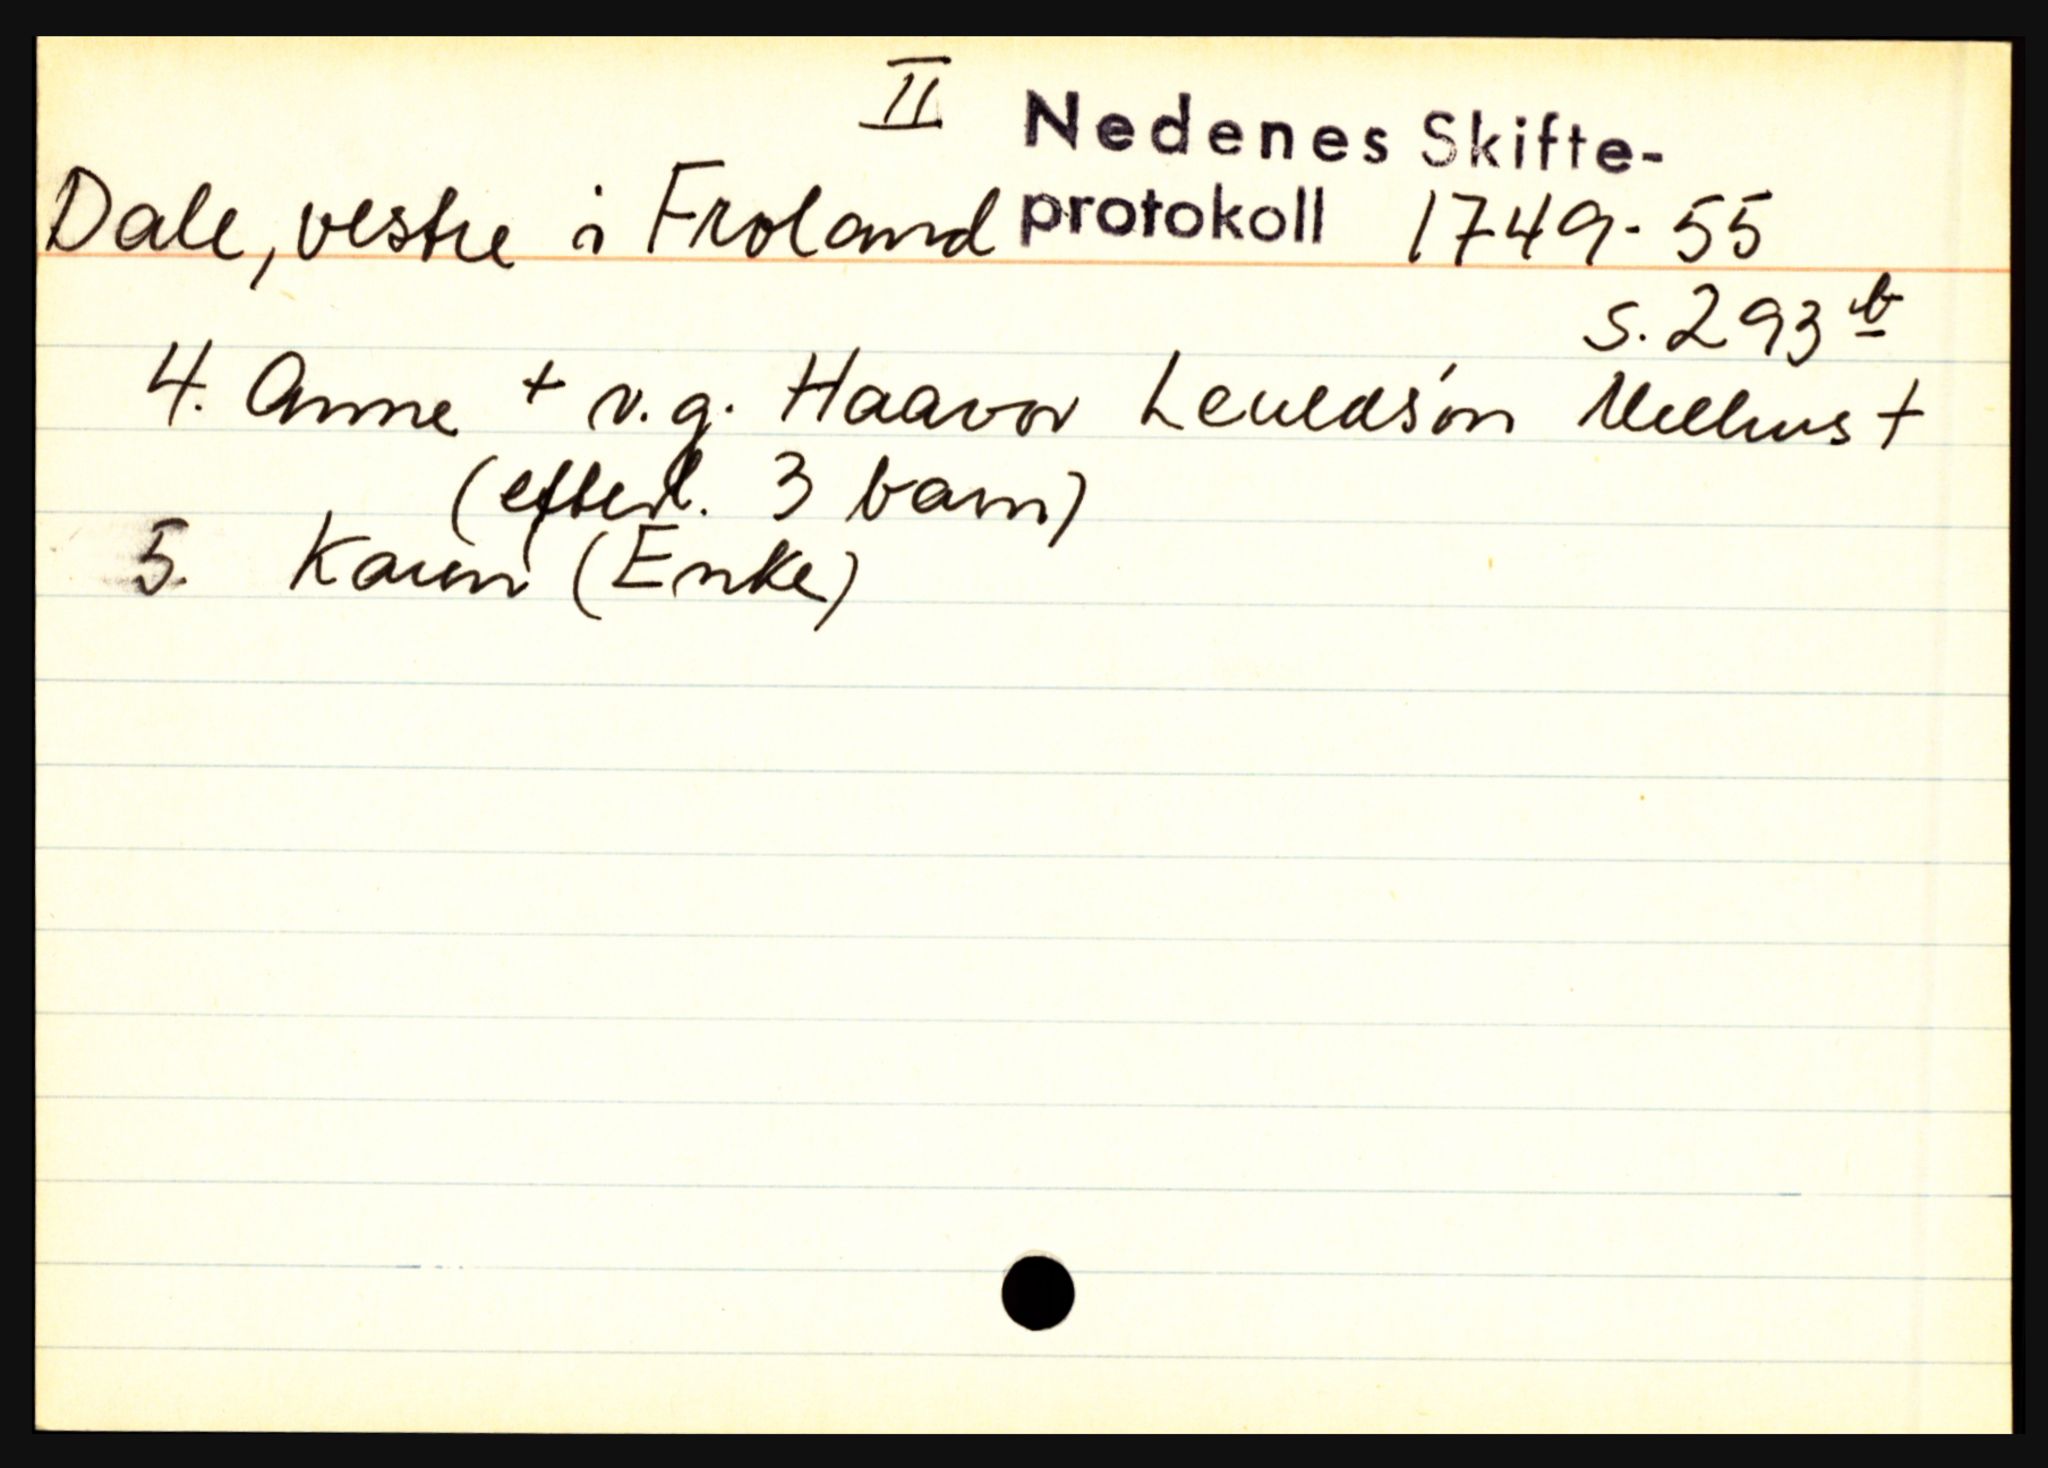 II Nedenes Skifte-
Dale, vestre i Froland protokoll 1749-55
s. 293 b
4. Anne + v.g. Haavor Leuldsøn Mellus +
(efterl. 3 barn)
5. Karen (Enke)